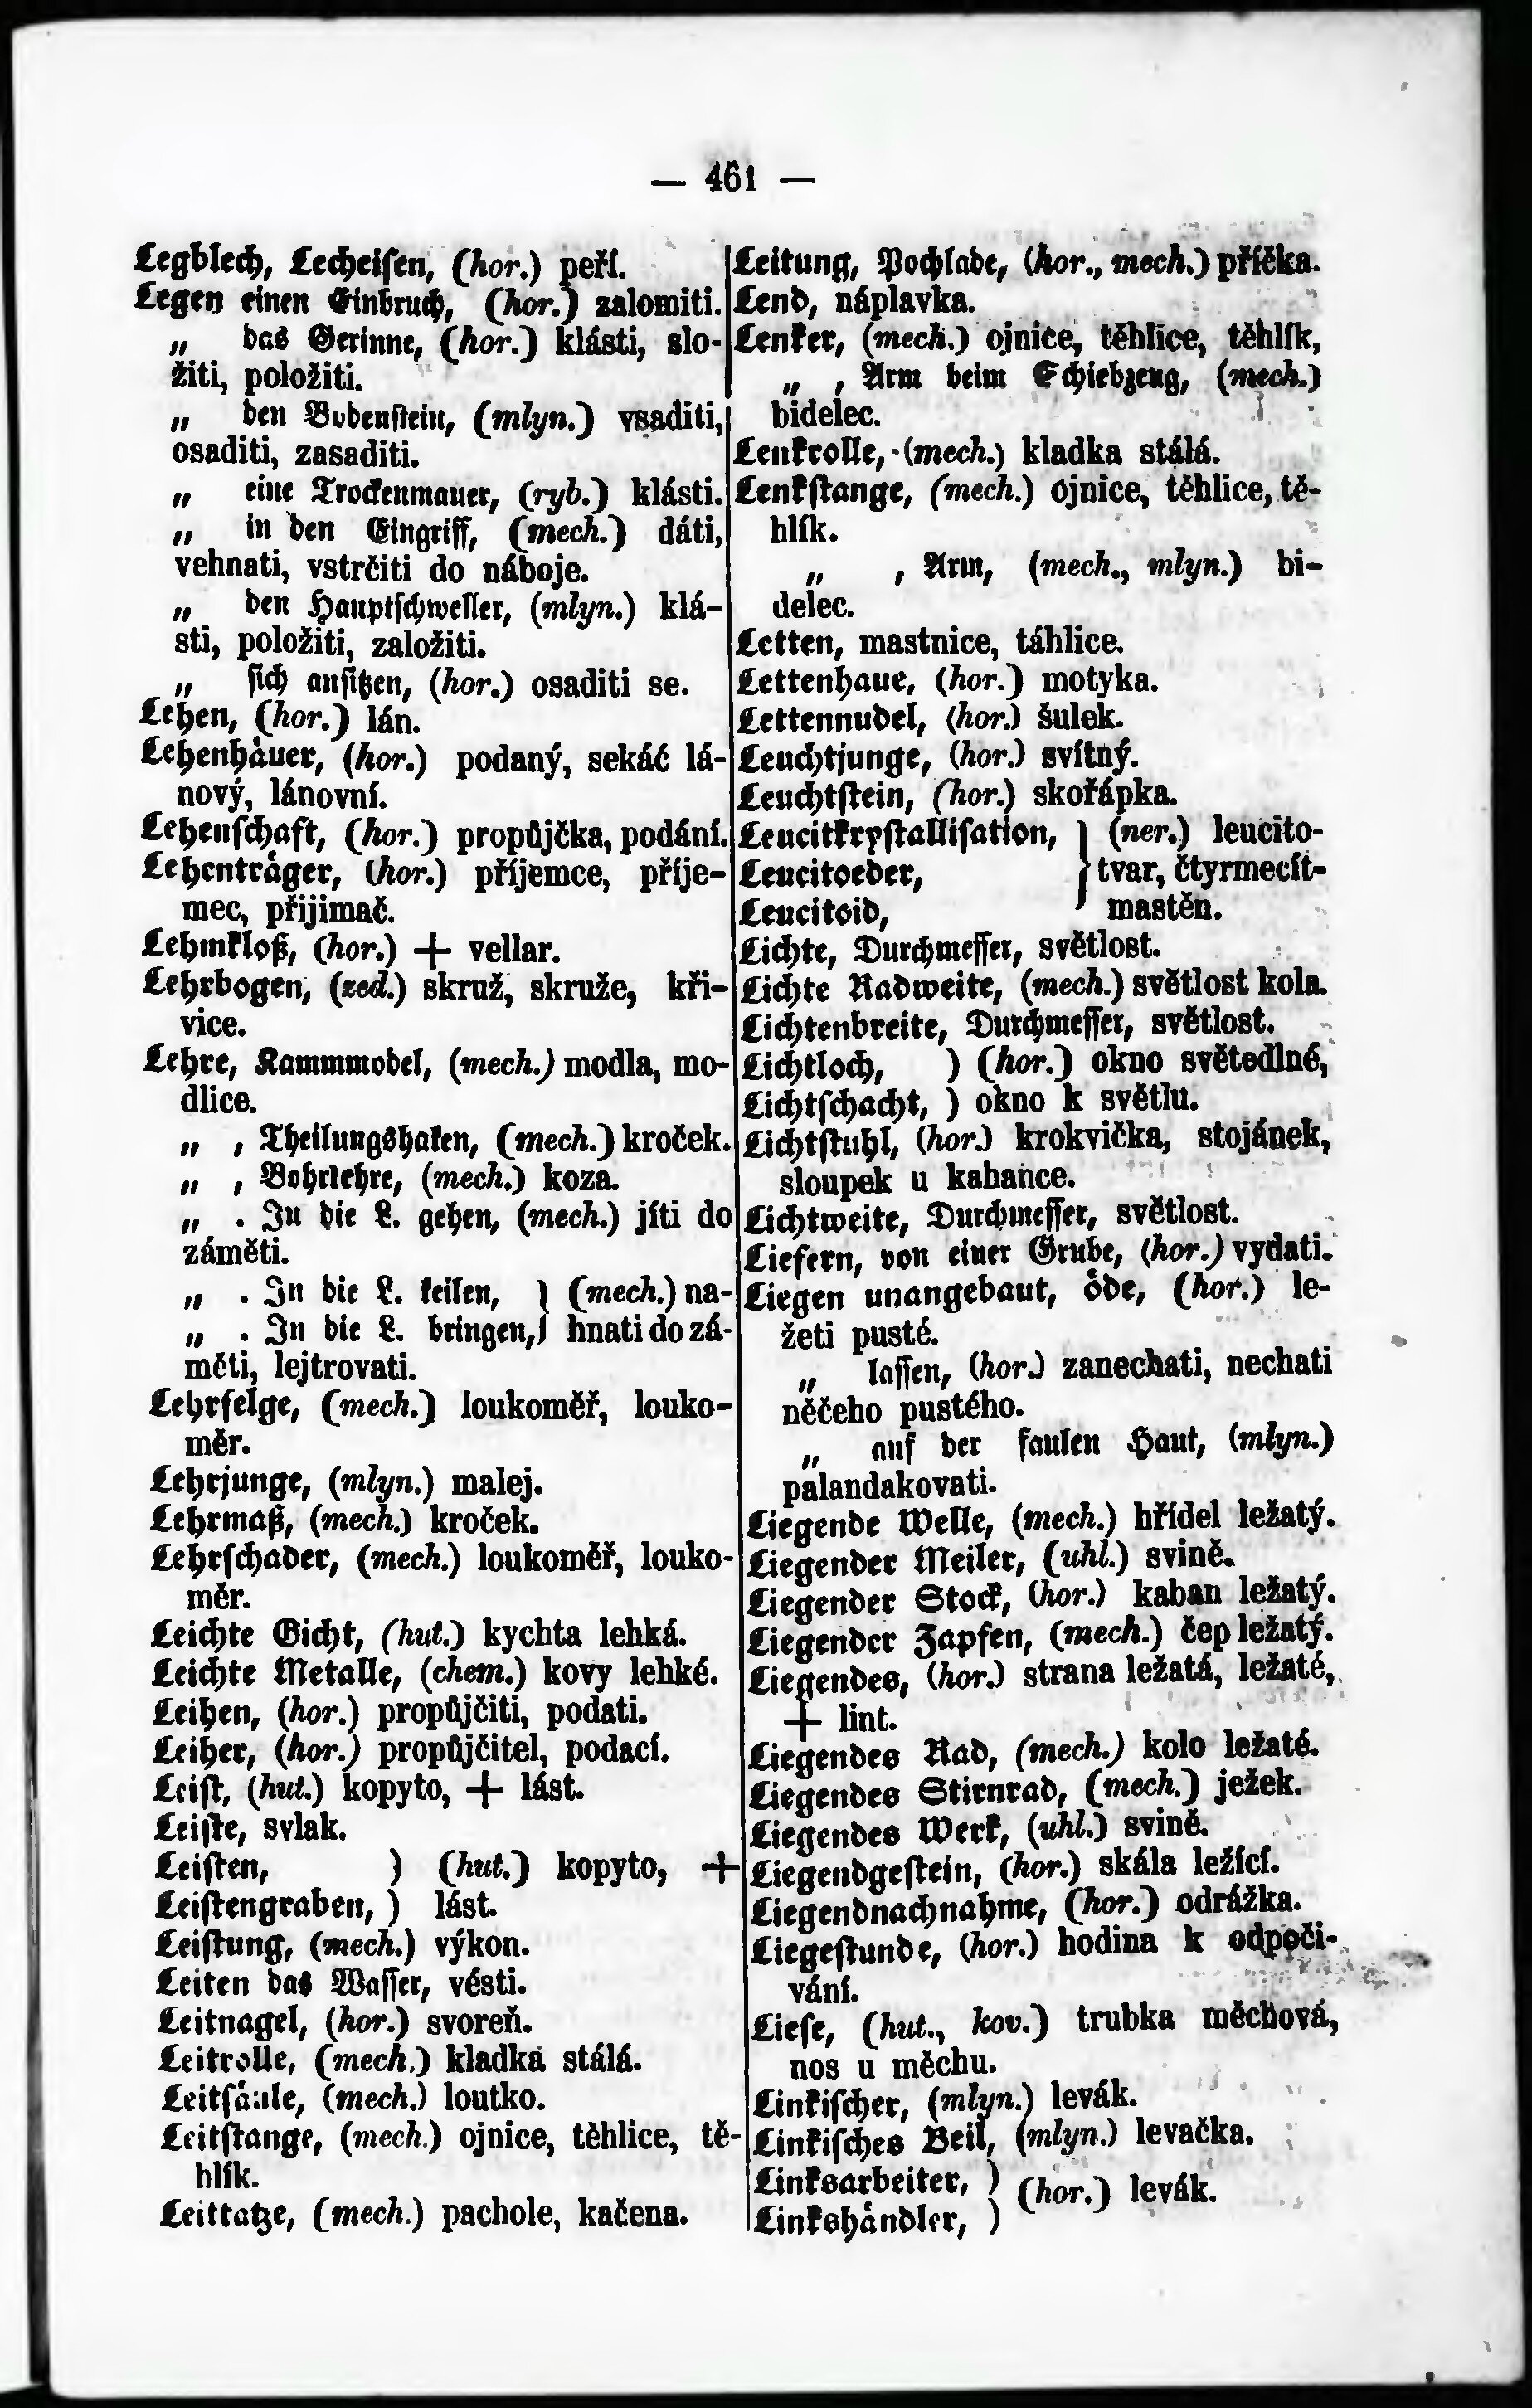 — 461 —
Legblech, Lecheisen, (hor.) peří.
Legen einen Einbruch, (hor.) zalomiti.
„ das Gerinne, (hor.) klásti, slo-
žiti, položiti.
„ den Bodenstein, (mlyn.) vsaditi,
osaditi, zasaditi.
„ eine Trockenmauer, (ryb.) klásti.
„ in den Eingriff, (mech.) dáti,
vehnati, vstrčiti do náboje.
„ den Hauptschweller, (mlyn.) klá-
sti, položiti, založiti.
„ sich ansitzen, (hor.) osaditi se.
Lehen, (hor.) lán.
Lehenhäuer, (hor.) podaný, sekáč lá-
nový, lánovní.
Lehenschaft, (hor.) propůjčka, podání.
Lehenträger, (hor.) příjemce, příje-
mec, přijimač.
Lehmkloß, (hor.) + vellar.
Lehrbogen, (zed.) skruž, skruže, kři-
vice.
Lehre, Kammmodel, (mech.) modla, mo-
dlice.
„ , Theilungshaken, (mech.) kroček.
„ , Bohrlehre, (mech.) koza.
„ . In die L. gehen, (mech.) jíti do
záměti.
„ . In die L. keilen, } (mech.) na-
„ . In die L. bringen, } hnati do zá-
měti, lejtrovati.
Lehrfelge, (mech.) loukoměř, louko-
měr.
Lehrjunge, (mlyn.) malej.
Lehrmaß, (mech.) kroček.
Lehrschader, (mech.) loukoměř, louko-
měr.
Leichte Gicht, (hut.) kychta lehká.
Leichte Metalle, (chem.) kovy lehké.
Leihen, (hor.) propůjčiti, podati.
Leiher, (hor.) propůjčitel, podací.
Leist, (hut.) kopyto, + lást.
Leiste, svlak.
Leisten, ) (hut.) kopyto, +
Leistengraben, ) lást.
Leistung, (mech.) výkon.
Leiten das Wasser, vésti.
Leitnagel, (hor.) svoreň.
Leitrolle, (mech.) kladka stálá.
Leitsäule, (mech.) loutko.
Leitstange, (mech.) ojnice, těhlice, tě-
hlík.
Leittatze, (mech.) pachole, kačena.
Leitung, Pochlade, (hor., mech.) příčka.
Lend, náplavka.
Lenker, (mech.) ojnice, těhlice, těhlík,
„ , Arm beim Schiebzeug, (mech.)
bidelec.
Lenkrolle, (mech.) kladka stálá.
Lenkstange, (mech.) ojnice, těhlice, tě-
hlík.
„ , Arm, (mech., mlyn.) bi-
delec.
Letten, mastnice, táhlice.
Lettenhaue, (hor.) motyka.
Lettennudel, (hor.) šulek.
Leuchtjunge, (hor.) svítný.
Leuchtstein, (hor.) skořápka.
Leucitkrystallisation, } (ner.) leucito-
Leucitoeder, } tvar, čtyrmecít-
Leucitoid, } mastěn.
Lichte, Durchmesser, světlost.
Lichte Radweite, (mech.) světlost kola.
Lichtenbreite, Durchmesser, světlost.
Lichtloch, ) (hor.) okno světedlné,
Lichtschacht, ) okno k světlu.
Lichtstuhl, (hor.) krokvička, stojánek,
sloupek u kahance.
Lichtweite, Durchmesser, světlost.
Liefern, von einer Grube, (hor.) vydati.
Liegen unangebaut, öde, (hor.) le-
žeti pusté.
„ lassen, (hor.) zanechati, nechati
něčeho pustého.
„ auf der faulen Haut, (mlyn.)
palandakovati.
Liegende Welle, (mech.) hřídel ležatý.
Liegender Meiler, (uhl.) svině.
Liegender Stock, (hor.) kaban ležatý.
Liegender Zapfen, (mech.) čep ležatý.
Liegendes, (hor.) strana ležatá, ležaté,
+ lint.
Liegendes Rad, (mech.) kolo ležaté.
Liegendes Stirnrad, (mech.) ježek.
Liegendes Werk, (uhl.) svině.
Liegendgestein, (hor.) skála ležící.
Liegendnachnahme, (hor.) odrážka.
Liegestunde, (hor.) hodina k odpoči-
vání.
Liese, (hut., kov.) trubka měchová,
nos u měchu.
Linkischer, (mlyn.) levák.
Linkisches Beil, (mlyn.) levačka.
Linksarbeiter, ) (hor.) levák.
Linkshändler, )